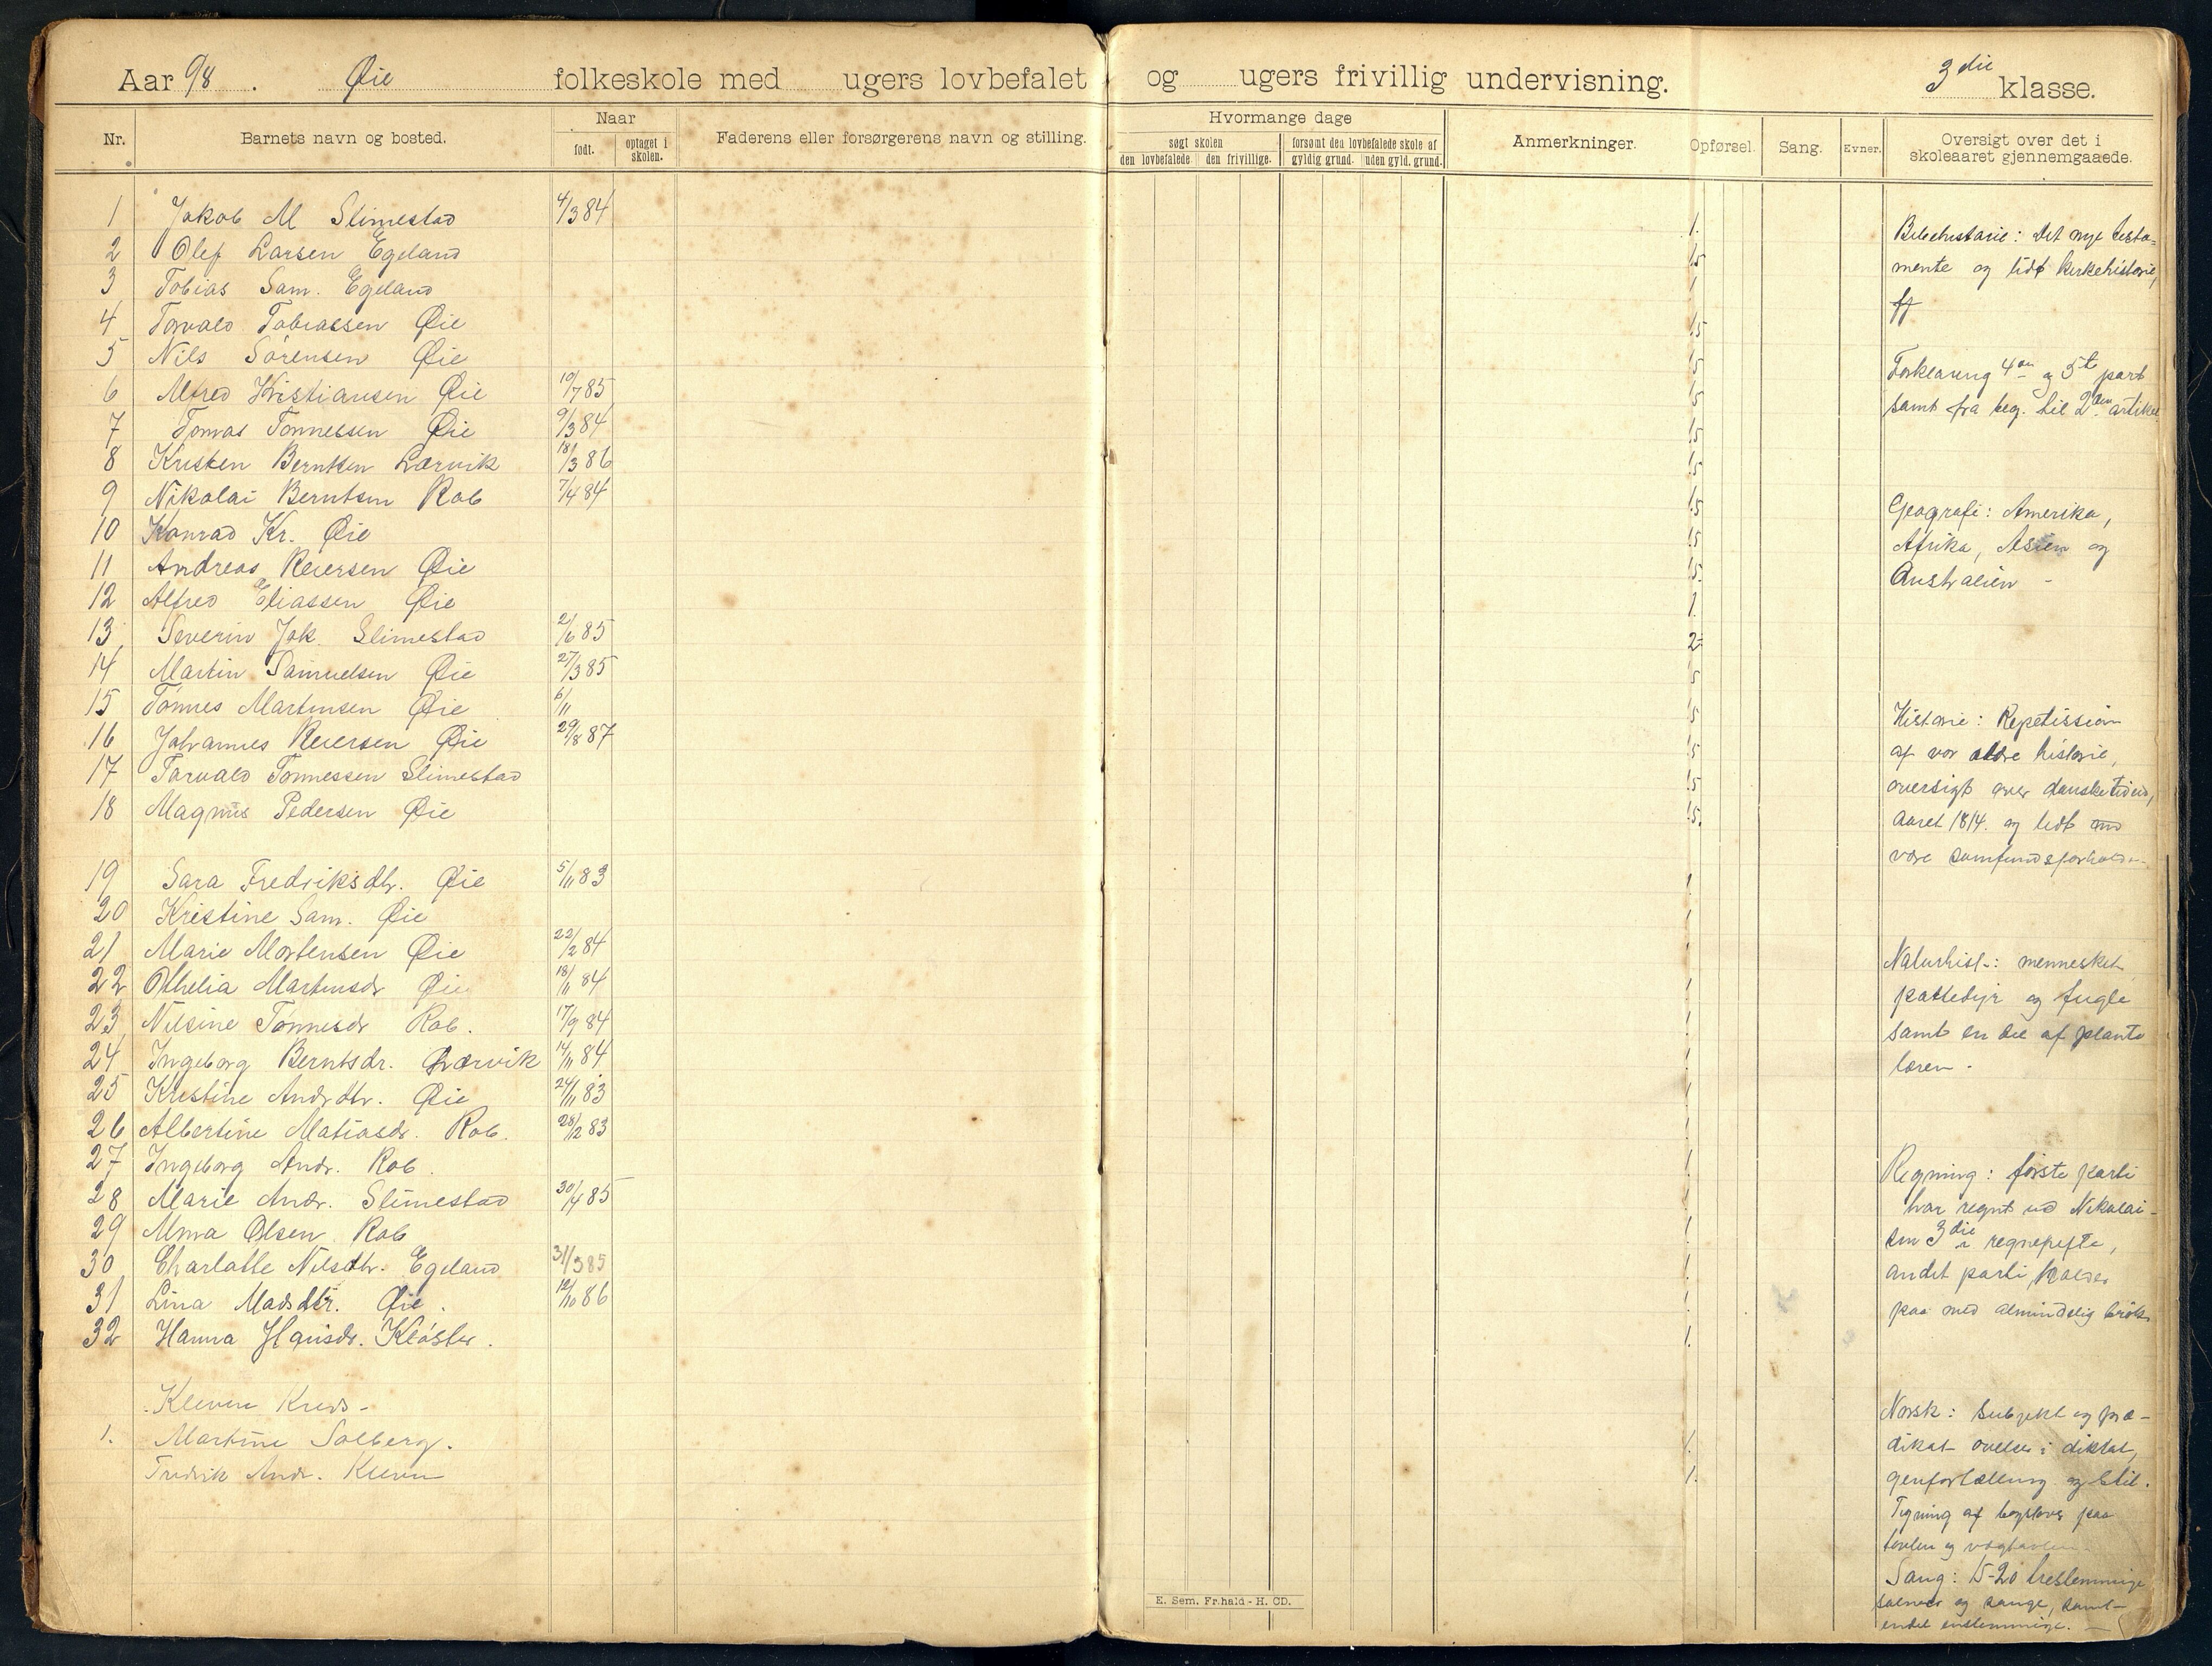 Aar 98. Øie folkeskole med ugers lovbefalet og ugers frivillig undervisning. 3die klasse.
Nr. Barnets navn og bosted. Naar født. optaget i skolen. Faderens eller forsørgerens navn og stilling. Hvormange dage søgt skolen den lovbefalede den frivillige. forsømt den lovbefalede skole af gyldig grund. uden gyld. grund. Anmerkninger. Opførsel. Sang. Evner. Oversigt over det i skoleaaret gjennemgaaede.
1 Jakob M Slimestad 4/3 84 1.
2 Olef Larsen Egeland 1.5
3 Tobias Sam. Egeland 1
4 Torvald Tobiassen Øie 1.5
5 Nils Sørensen Øie 1.5
6 Alfred Kristiansen Øie 10/7 85 1.5
7 Tomas Tønnessen Øie 9/3 84 1.5
8 Kristen Berntsen Lervik 18/3 86 1.5
9 Nikolai Berntsen Rob 7/4 84 1.5
10 Konrad Kr. Øie 1.5
11 Andreas Reiersen Øie 1.5
12 Alfred Eliassen Øie 1.
13 Severin Jak. Slimestad 2/6 85 2
14 Martin Samuelsen Øie 27/3 85 5
15 Tønnes Martinsen Øie 6/11 1.5
16 Johannes Reiersen Øie 29/8 87 1.5
17 Torvald Tønnessen Slimestad 1.5
18 Magnus Pedersen Øie 1.5.
19 Sara Fredriksdtr. Øie 5/11 83 1.
20 Kristine Sam. Øie 1
21 Marie Mortensen Øie 22/2 84
22 Othelia Martinsdr Øie 18/11 84 1
23 Nilsine Tønnesdr Rob. 17/9 84 1
24 Ingeborg Berntsdr. Lervik 14/11 84 1
25 Kristine Andrdtr. Øie 24/11 83 1
26 Albertine Matiasdr. Rob. 28/12 83 1
27 Ingeborg Andr. Rob. 1
28 Marie Andr. Slimestad 30/4 85 1
29 Alma Olsen Rob 1.
30 Charlotte Nilsdtr. Egeland 31/3 85 1.
31 Lina Madsdtr. Øie. 12/10 86 1
32 Hanna Hansdr. Kløster. 1.
Kleven Kreds -
1. Martine Solberg. 1.
Fredrik Andr. Kleven 1.
Bibelhistorie: Det nye testa-
mente og lidt kirkehistorie,
Forklaring 4de og 5te part
samt fra beg. til 2den artikel
Geografi: Amerika,
Afrika, Asien og
Australien -
Historie: Repetission
af vor ældre historie,
oversigt over dansketiden,
aaret 1814. og lidt om
vore samfundsforholde
Naturhist.: mennesket
pattedyr og fugle
samt en del af plante
læren.
Regning: første parti
har regnt ud Nikolai-
sen 3die regnehefte,
andet parti holder
paa med almindelig brøk.
Norsk: Subjekt og præ-
dikat øvelse i diktat,
genfortælling og stil.
Tegning af bogstaver paa
tavlen og vægtavlen
Sang: 15-20 trestemmige
salmer og sange, samt
endel enstemmige.
E. Sem. Fr.hald - H. CD.